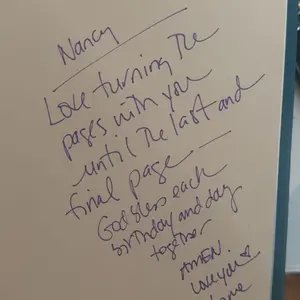 Nancy
Love turning the
pages with you
until the last and
final page —
God bless each
birthday and day
together
AMEN.
Love you